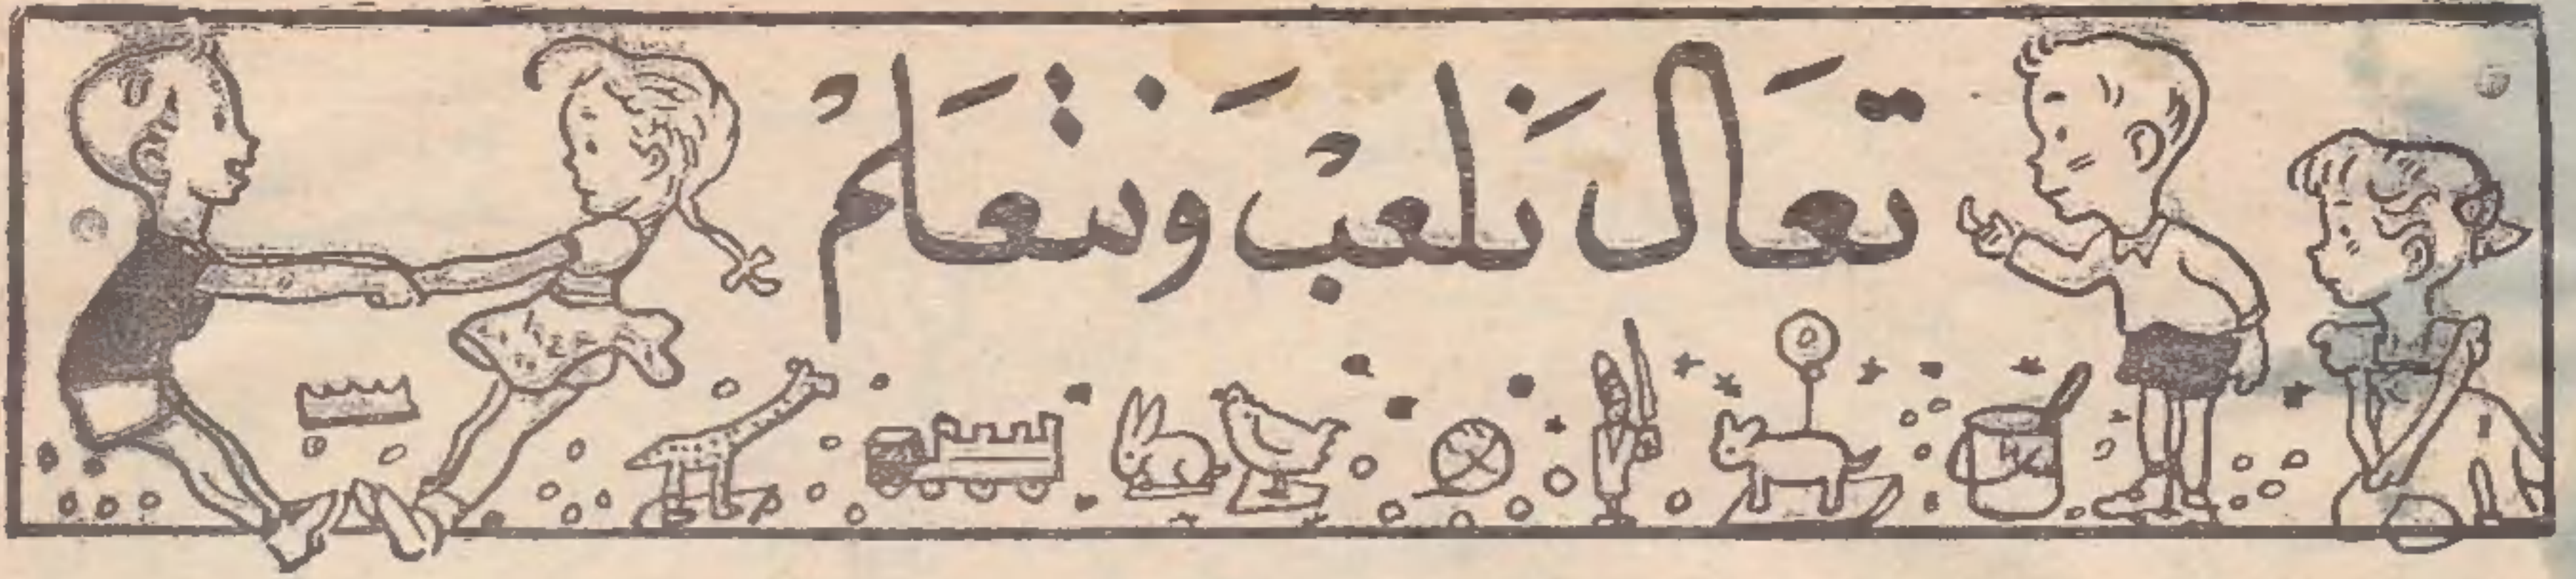 تعَال نَلعبْ وَنتَعَلمْ